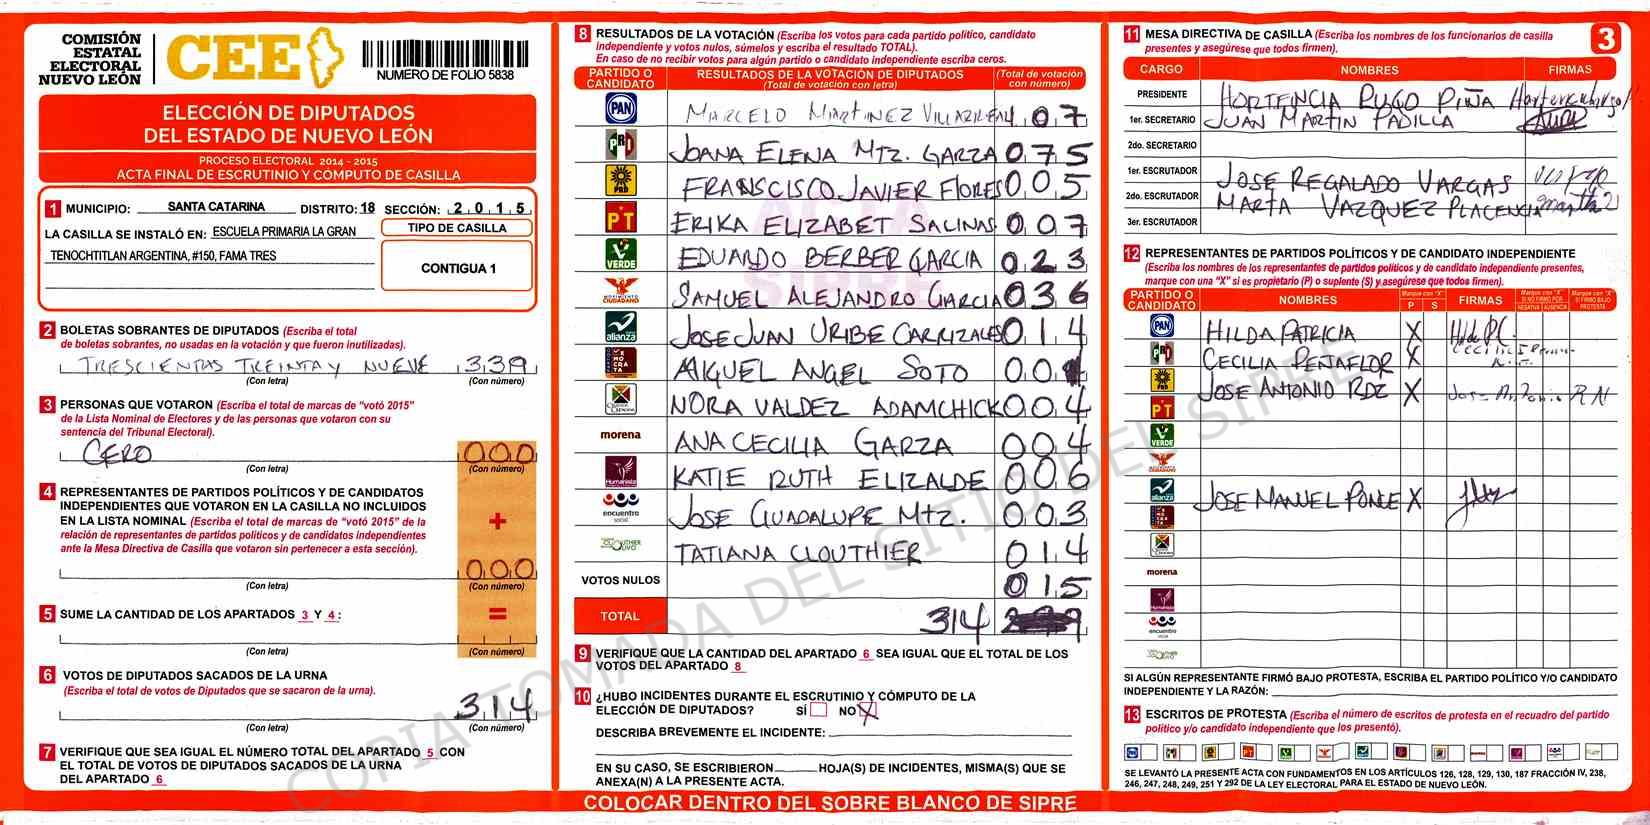 COMISIÓN
ESTATAL
ELECTORAL
NUEVO LEÓN
CEE
NUMERO DE FOLIO 5838
ELECCIÓN DE DIPUTADOS
DEL ESTADO DE NUEVO LEÓN
PROCESO ELECTORAL 2014 - 2015
ACTA FINAL DE ESCRUTINIO Y CÓMPUTO DE CASILLA
1 MUNICIPIO: SANTA CATARINA DISTRITO: 18 SECCIÓN: 2 0 1 5
LA CASILLA SE INSTALÓ EN: ESCUELA PRIMARIA LA GRAN
TENOCHTITLAN ARGENTINA, #150, FAMA TRES
TIPO DE CASILLA
CONTIGUA 1
2 BOLETAS SOBRANTES DE DIPUTADOS (Escriba el total
de boletas sobrantes, no usadas en la votación y que fueron inutilizadas).
TRESCIENTAS TREINTA Y NUEVE 339
(Con letra) (Con número)
3 PERSONAS QUE VOTARON (Escriba el total de marcas de “votó 2015”
de la Lista Nominal de Electores y de las personas que votaron con su
sentencia del Tribunal Electoral).
CERO 000
(Con letra) (Con número)
4 REPRESENTANTES DE PARTIDOS POLÍTICOS Y DE CANDIDATOS
INDEPENDIENTES QUE VOTARON EN LA CASILLA NO INCLUIDOS
EN LA LISTA NOMINAL (Escriba el total de marcas de “votó 2015” de la
relación de representantes de partidos políticos y de candidatos independientes
ante la Mesa Directiva de Casilla que votaron sin pertenecer a esta sección).
+
000
(Con letra) (Con número)
5 SUME LA CANTIDAD DE LOS APARTADOS 3 Y 4 :
=
(Con letra) (Con número)
6 VOTOS DE DIPUTADOS SACADOS DE LA URNA
(Escriba el total de votos de Diputados que se sacaron de la urna).
314
(Con letra) (Con número)
7 VERIFIQUE QUE SEA IGUAL EL NÚMERO TOTAL DEL APARTADO 5 CON
EL TOTAL DE VOTOS DE DIPUTADOS SACADOS DE LA URNA
DEL APARTADO 6
8 RESULTADOS DE LA VOTACIÓN (Escriba los votos para cada partido político, candidato
independiente y votos nulos, súmelos y escriba el resultado TOTAL).
En caso de no recibir votos para algún partido o candidato independiente escriba ceros.
PARTIDO O CANDIDATO RESULTADOS DE LA VOTACIÓN DE DIPUTADOS (Total de votación con letra) (Total de votación con número)
PAN MARCELO MARTINEZ VILLARREAL 107
PRD JOANA ELENA MTZ. GARZA 075
PRD FRANSCISCO JAVIER FLORES 005
PT ERIKA ELIZABET SALINAS 007
VERDE EDUARDO BERBER GARCIA 023
MOVIMIENTO CIUDADANO SAMUEL ALEJANDRO GARCIA 036
alianza JOSE JUAN URIBE CARRIZALES 014
DEMOCRATA MIGUEL ANGEL SOTO 001
NORA VALDEZ ADAMCHICK 004
morena ANA CECILIA GARZA 004
Humanista KATIE RUTH ELIZALDE 006
encuentro social JOSE GUADALUPE MTZ. 003
CLOUTHIER TATIANA CLOUTHIER 014
VOTOS NULOS 015
TOTAL 314
9 VERIFIQUE QUE LA CANTIDAD DEL APARTADO 6 SEA IGUAL QUE EL TOTAL DE LOS
VOTOS DEL APARTADO 8
10 ¿HUBO INCIDENTES DURANTE EL ESCRUTINIO Y CÓMPUTO DE LA
ELECCIÓN DE DIPUTADOS? SÍ NO X
DESCRIBA BREVEMENTE EL INCIDENTE:
EN SU CASO, SE ESCRIBIERON HOJA(S) DE INCIDENTES, MISMA(S) QUE SE
ANEXA(N) A LA PRESENTE ACTA.
COLOCAR DENTRO DEL SOBRE BLANCO DE SIPRE
11 MESA DIRECTIVA DE CASILLA (Escriba los nombres de los funcionarios de casilla
presentes y asegúrese que todos firmen).
3
CARGO NOMBRES FIRMAS
PRESIDENTE HORTENCIA PUGO PIÑA
1er. SECRETARIO JUAN MARTIN PADILLA
2do. SECRETARIO
1er. ESCRUTADOR JOSE REGALADO VARGAS
2do. ESCRUTADOR MARTA VAZQUEZ PLACENCIA
3er. ESCRUTADOR
12 REPRESENTANTES DE PARTIDOS POLÍTICOS Y DE CANDIDATO INDEPENDIENTE
(Escriba los nombres de los representantes de partidos políticos y de candidato independiente presentes,
marque con una “X” si es propietario (P) o suplente (S) y asegúrese que todos firmen).
PARTIDO O CANDIDATO NOMBRES Marque con “X” P S FIRMAS Marque con “X” SI NO FIRMÓ POR NEGATIVA AUSENCIA Marque con “X” SI FIRMÓ BAJO PROTESTA
PAN HILDA PATRICIA X
PRD CECILIA PEÑAFLOR X
PRD JOSE ANTONIO RDZ X
PT
VERDE
alianza JOSE MANUEL PONCE X
morena
Humanista
encuentro social
SI ALGÚN REPRESENTANTE FIRMÓ BAJO PROTESTA, ESCRIBA EL PARTIDO POLÍTICO Y/O CANDIDATO
INDEPENDIENTE Y LA RAZÓN:
13 ESCRITOS DE PROTESTA (Escriba el número de escritos de protesta en el recuadro del partido
político y/o candidato independiente que los presentó).
SE LEVANTÓ LA PRESENTE ACTA CON FUNDAMENTOS EN LOS ARTÍCULOS 126, 128, 129, 130, 187 FRACCIÓN IV, 238,
246, 247, 248, 249, 251 Y 292 DE LA LEY ELECTORAL PARA EL ESTADO DE NUEVO LEÓN.
COPIA TOMADA DEL SITIO DEL SIPRE